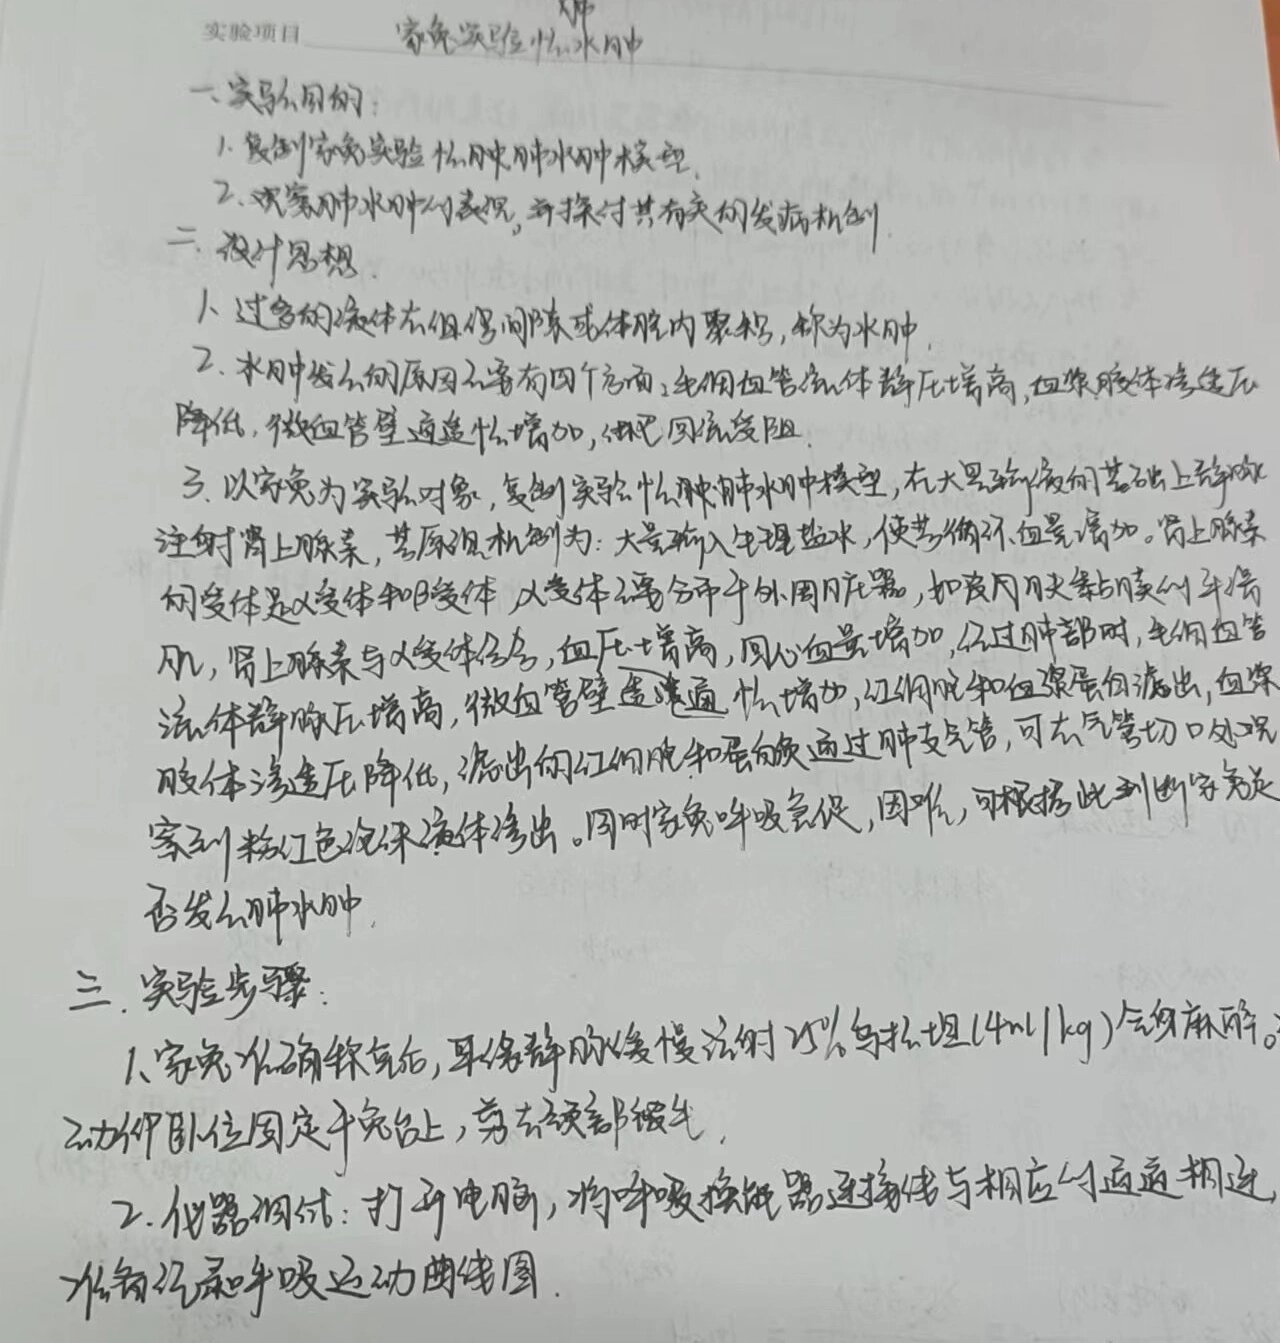 肺
实验项目 家兔实验性水肿
一、实验目的：
1. 复制家兔实验性肺水肿模型.
2. 观察肺水肿的表现，并探讨其有关的发病机制.
二、设计思想.
1、过多的液体在组织间隙或体腔内聚积，称为水肿.
2. 水肿发生的原因主要有四个方面：毛细血管流体静压增高，血浆胶体渗透压
降低，微血管壁通透性增加，淋巴回流受阻.
3. 以家兔为实验对象，复制实验性肺水肿模型，在大量输液的基础上静脉
注射肾上腺素，其原理机制为：大量输入生理盐水，使其循环血量增加。肾上腺素
的受体是α受体和β受体，α受体主要分布于外周脏器，如皮肤粘膜的平滑
肌，肾上腺素与α受体结合，血压增高，回心血量增加，经过肺部时，毛细血管
流体静脉压增高，微血管壁透通性增加，红细胞和血浆蛋白滤出，血浆
胶体渗透压降低，滤出的红细胞和蛋白质通过肺支气管，可在气管切口处观
察到粉红色泡沫液体渗出。同时家兔呼吸急促，困难，可根据此判断家兔是
否发生肺水肿.
三. 实验步骤：
1、家兔准确称重后，耳缘静脉缓慢注射25%乌拉坦(4ml/kg)全身麻醉。
动仰卧位固定于兔台上，剪去颈部被毛.
2. 仪器调试：打开电脑，将呼吸换能器连接线与相应的通道相连，
准备记录呼吸运动曲线图.